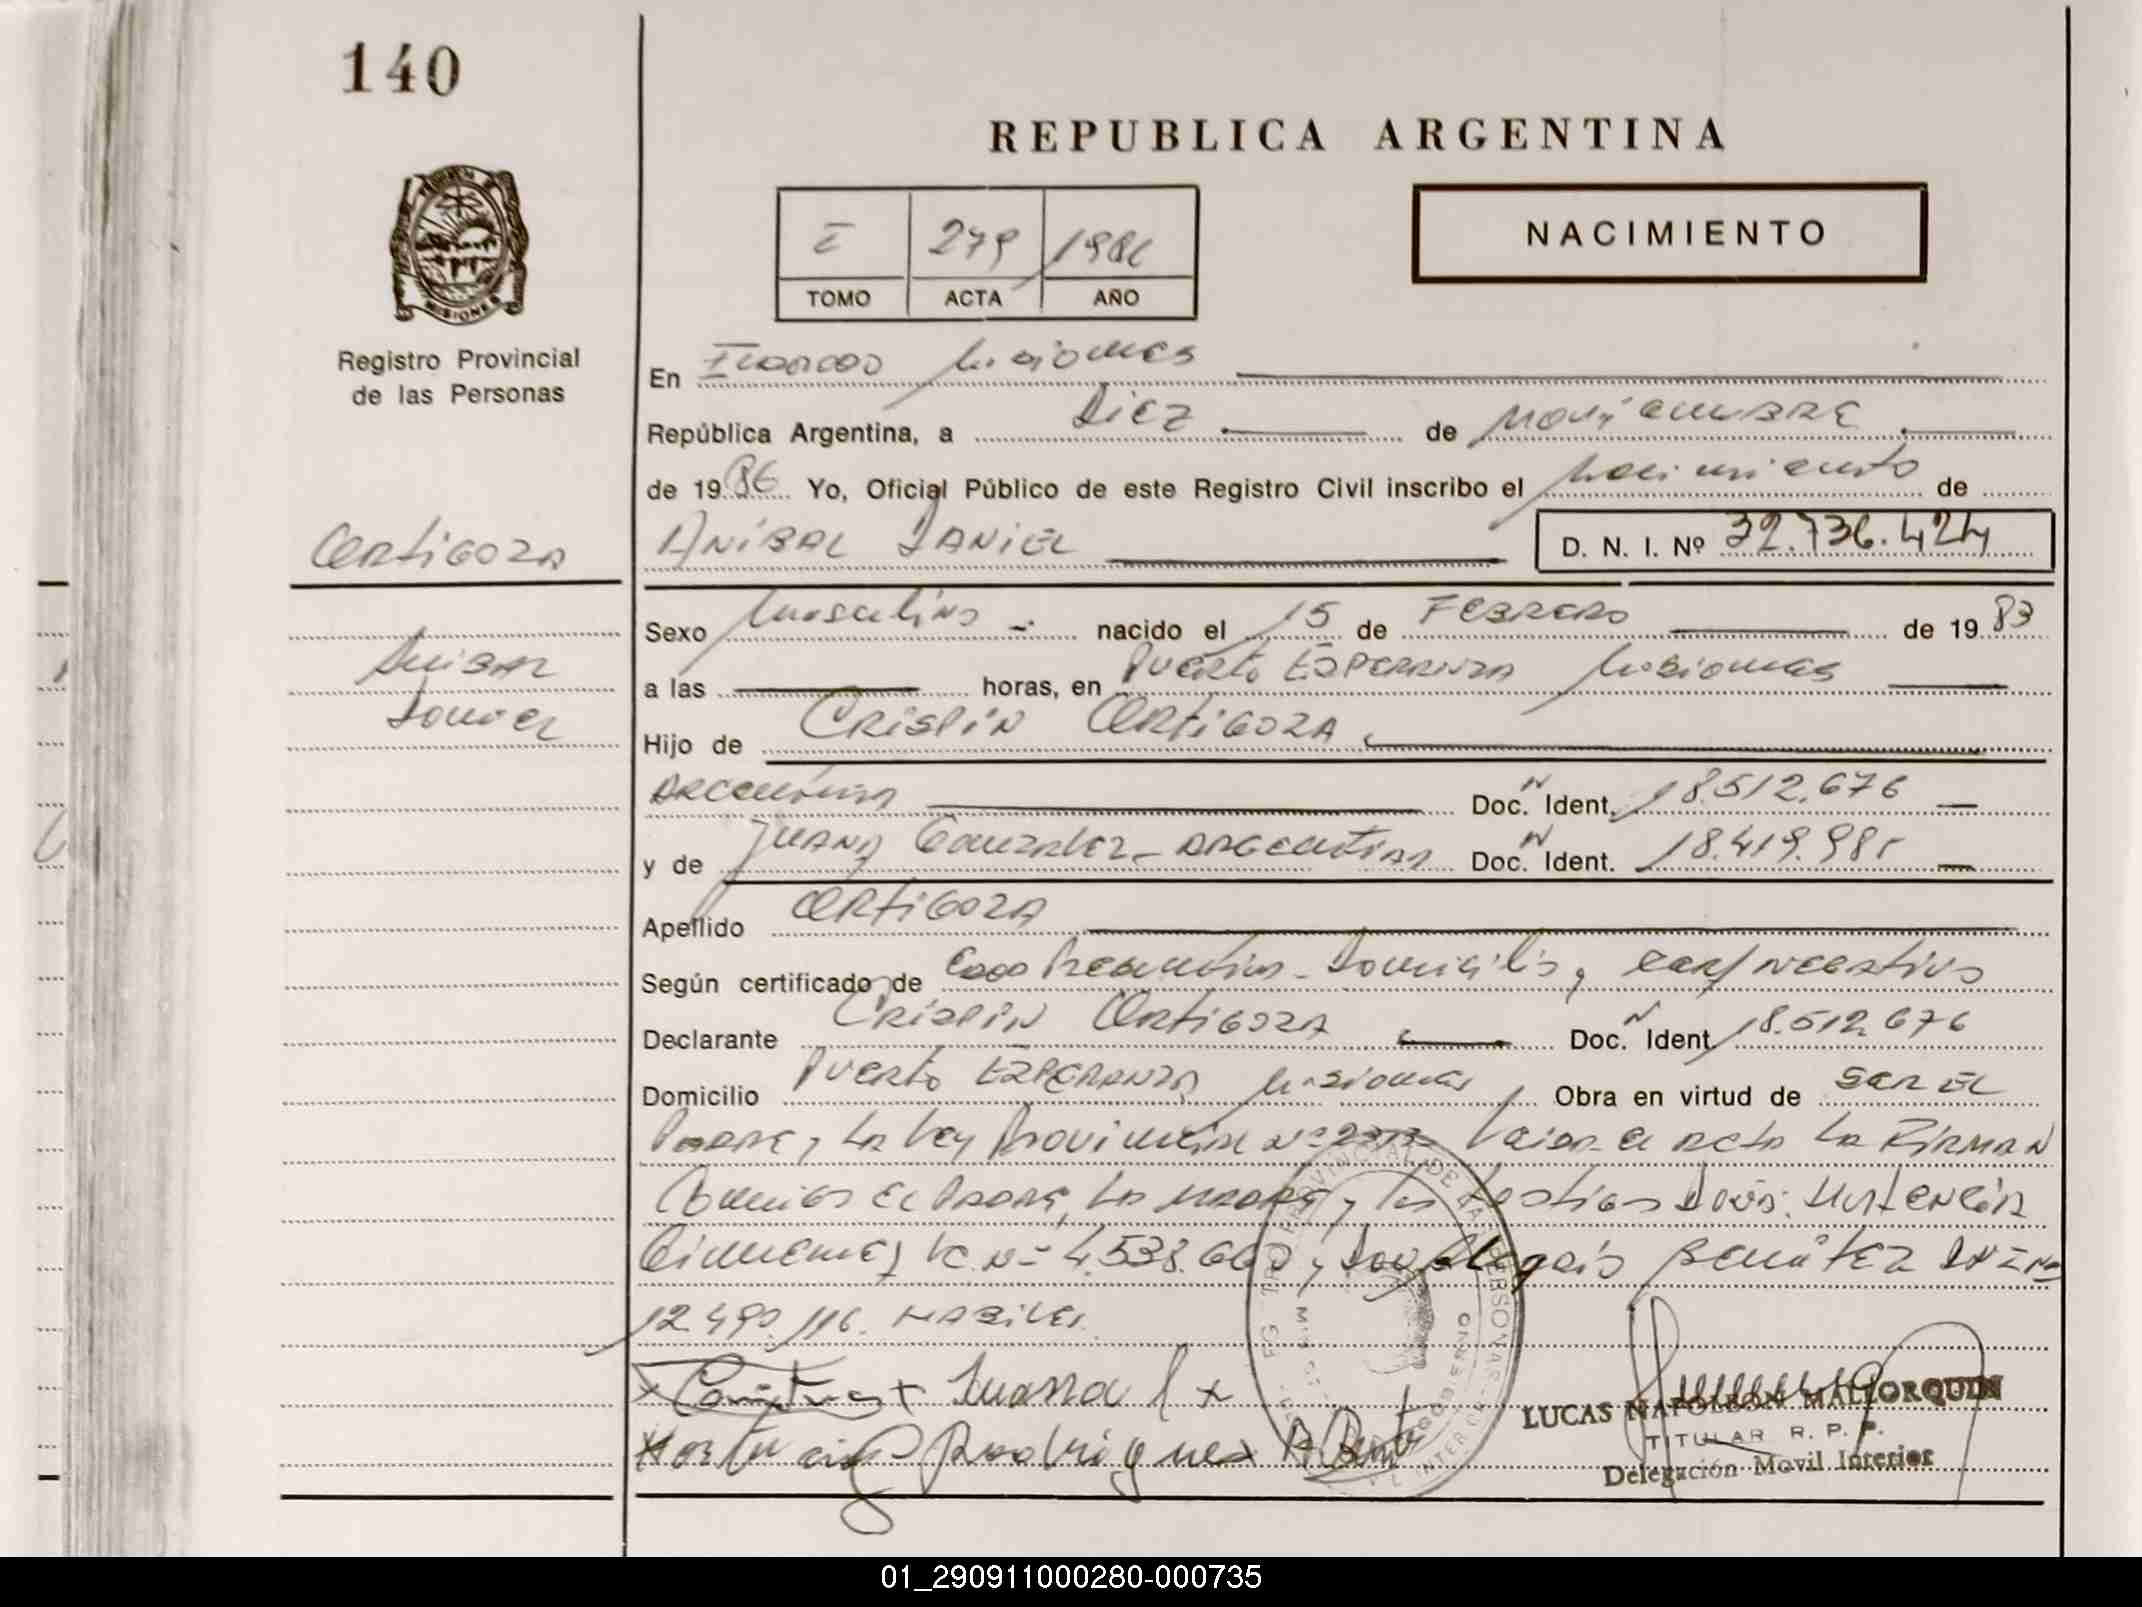 140
REPUBLICA ARGENTINA
NACIMIENTO
I 279 1986
TOMO ACTA AÑO
Registro Provincial
de las Personas
En Eldorado Misiones
República Argentina, a Diez de Noviembre
de 1986 Yo, Oficial Público de este Registro Civil inscribo el Nacimiento de
Ortigoza
ANIBAL DANIEL D. N. I. Nº 32.736.424
Sexo Masculino nacido el 15 de FEBRERO de 1983
Anibal
Daniel
a las horas, en Puerto Esperanza Misiones
Hijo de CRISPIN ORTIGOZA
Argentina Doc. Ident. 18.512.676
y de Juana Gonzalez - Argentina Doc. Ident. 18.419.985
Apellido ORTIGOZA
Según certificado de Domicilio y
Declarante CRISPIN ORTIGOZA Doc. Ident. 18.512.676
Domicilio Puerto Esperanza Misiones Obra en virtud de SER EL
Padre y la Ley Provincial Nº Leida el acta la FIRMAN
el Padre, la Madre y los testigos Hortencia
4.538.660 y Benitez
12.490.116. Habiles.
Juana
Rodrigues
LUCAS NAPOLEON MALLORQUIN
TITULAR R. P. P.
Delegación Movil Interior
01_290911000280-000735